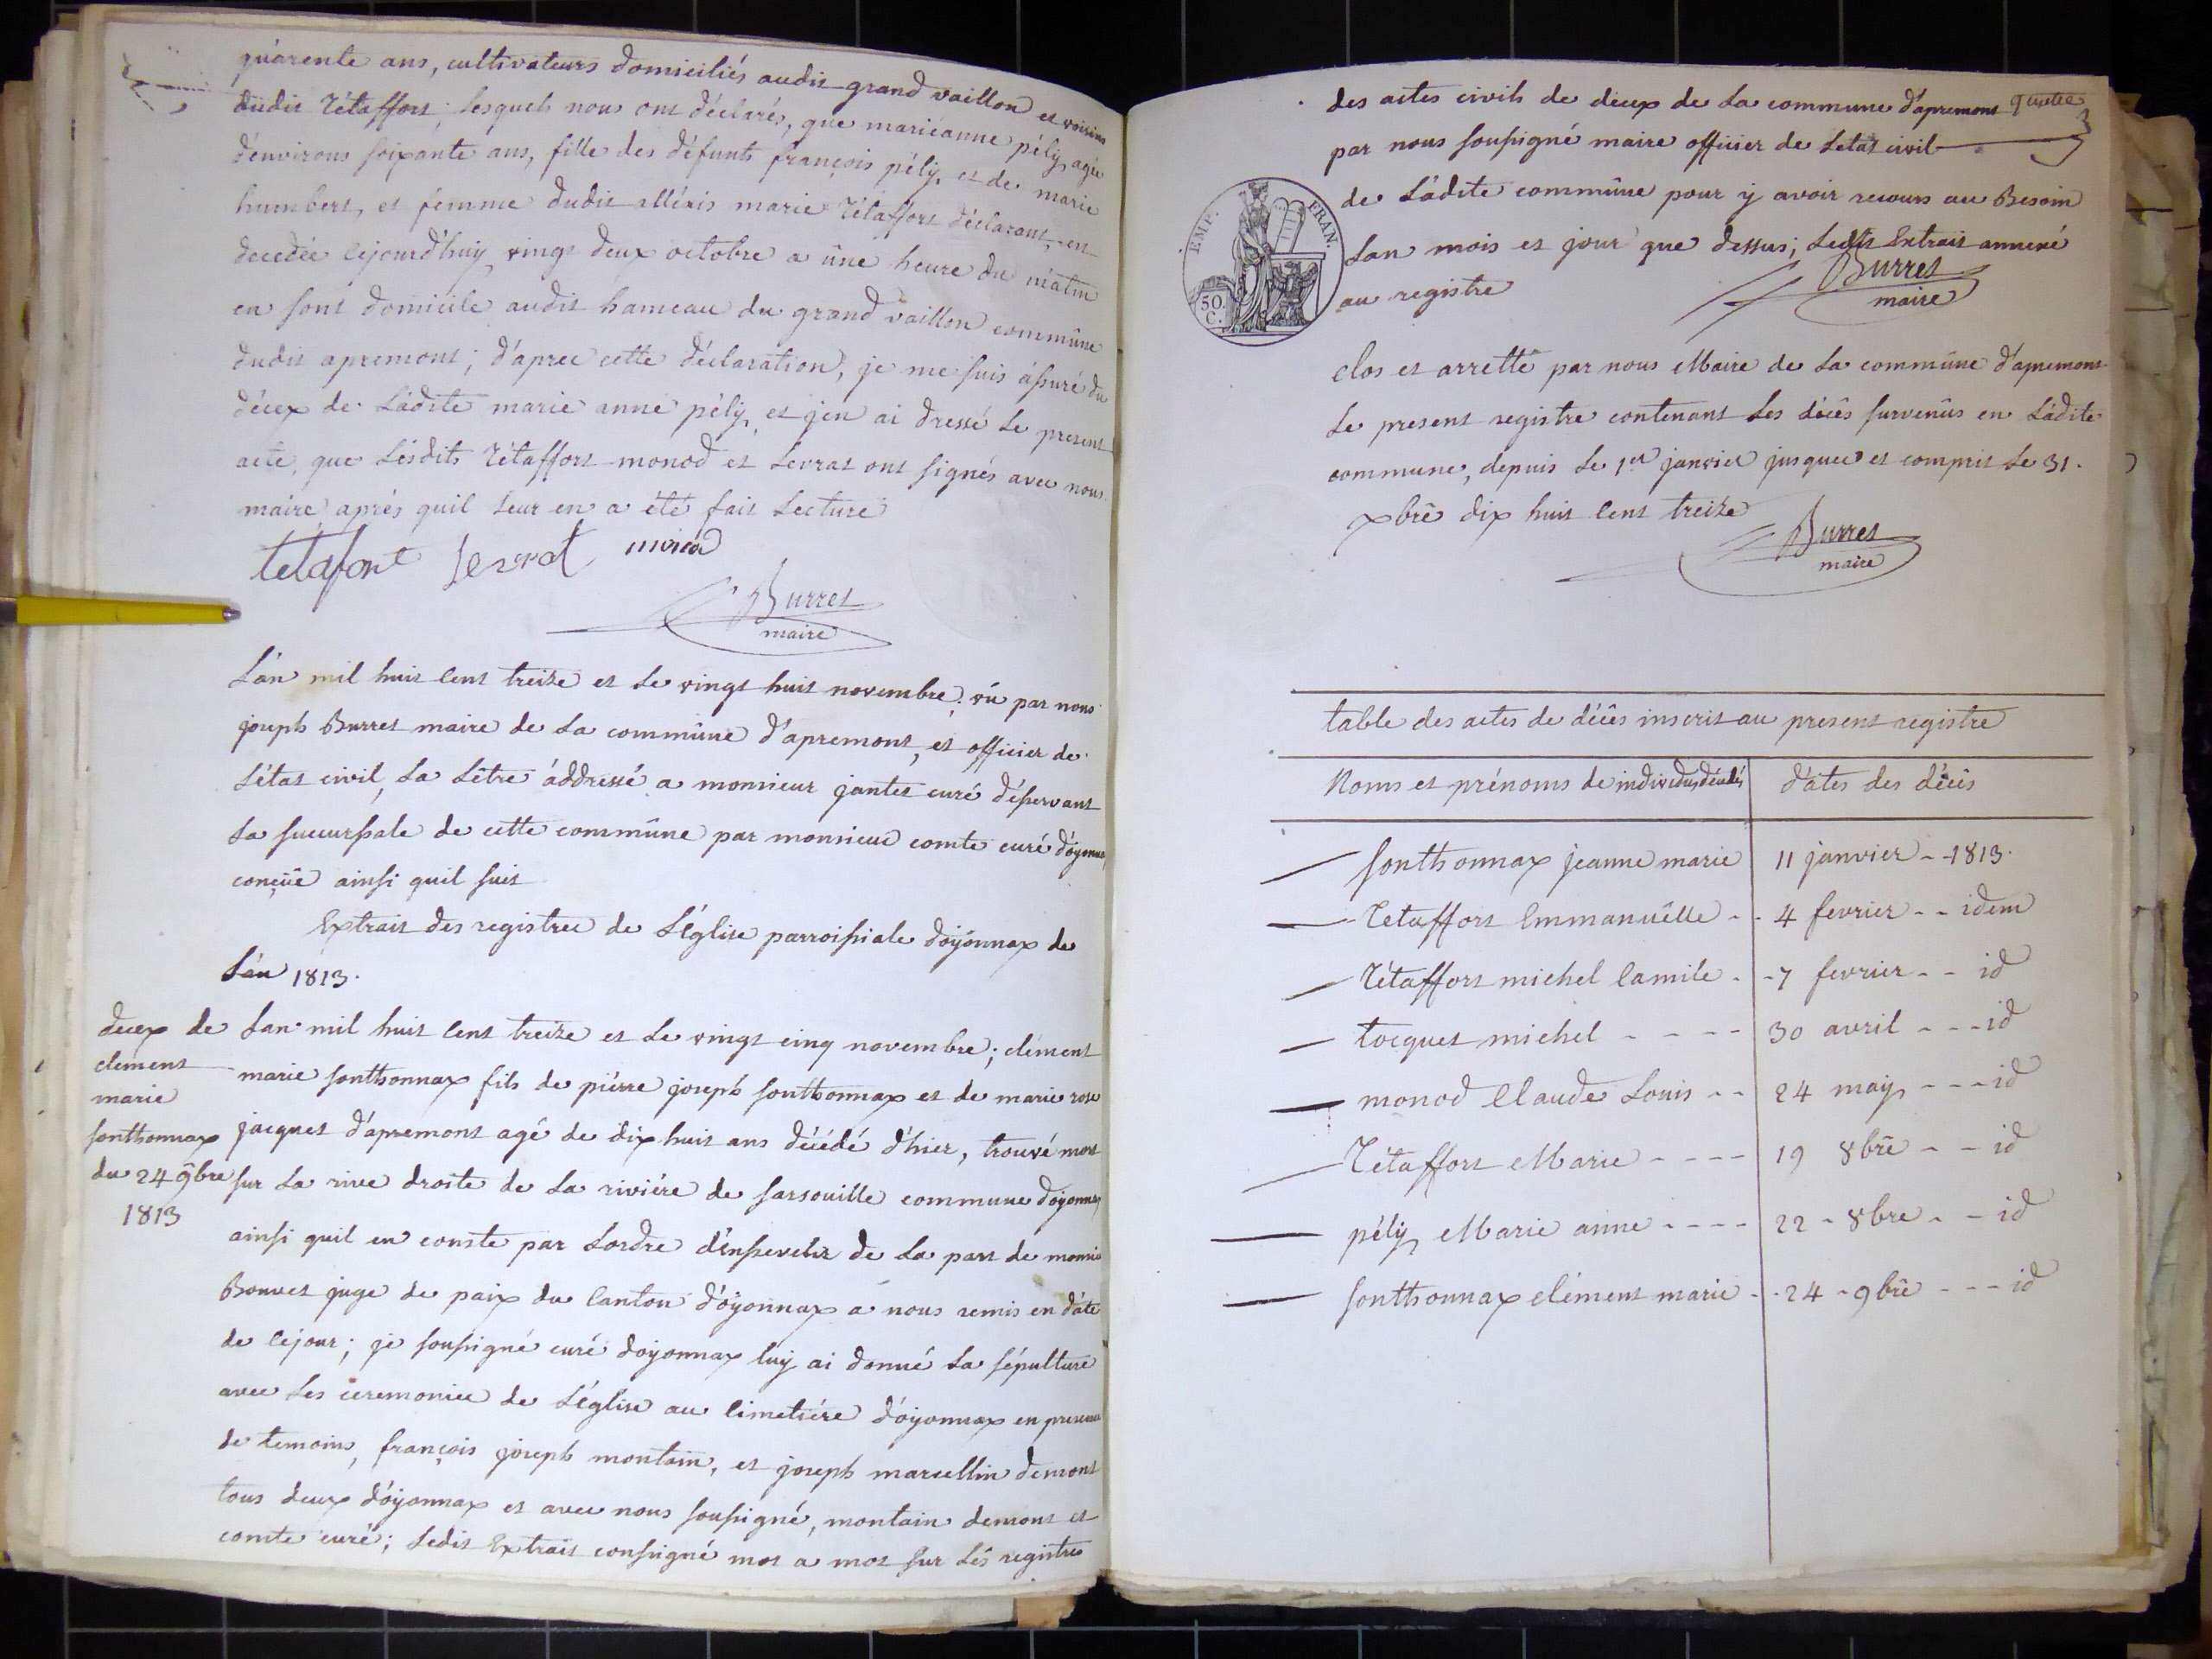 quarente ans, cultivateurs domiciliés audit grand vaillon et voisins
dudit Tétaffort; lesquels nous ont déclarés, que marieanne pély, agée
d'environs soixante ans, fille des défunts françois pély, et de marie
humbert, et femme dudit alléxis marie Tétaffort déclarant, est
decedée cejourd'huy vingt deux octobre a ûne heure du matin
en sont domicile audit hameau du grand vaillon commûne
dudit apremont; d'apree cette déclaration, je me suis assuré du
décex de Ladite marie anne pély, et j'en ai dressé Le present
acte, que Lésdits Tétaffort monod et Levrat ont signés avec nous
maire aprés quil Leur en a été fait Lecture
tetafort Levrat monod
Burret
maire
L'an mil huit Cent treize et Le vingt huit novembre; vû par nous
joseph Burret maire de La commûne d'apremont, et officier de
L'état civil, La Lêtre áddressé a monsieur jantet curé déservant
La succursale de cette commûne par monsieur comte curé d'öyonnax,
conçûe ainsi quil suit
Extrait des registree de L'église parroissiale döÿonnax de
L'an 1813.
decex de
clement
marie
sonthonnax
du 24 9bre
1813
Lan mil huit Cent treize et Le vingt cinq novembre; clément
marie sonthonnax fils de piérre joseph sonthonnax et de marie rose
jacquet d'apremont agé de dix huit ans décédé d'hier, trouvé mort
sur La rive droite de La riviére de sarsouille commune döyonnax
ainsi quil en conste par Lordre d'ensevelir de La part de monsier
Bonvet juge de paix du Canton d'öÿonnax a nous remis en date
de Cejour; je soussigné curé doÿonnax luÿ ai donné La sépulture
avec Les ceremoniee de L'église au Cimetiére d'öÿonnax en presence
de temoins, françois joseph montain, et joseph marcellin demont
tous deux d'öÿonnax et avec nous soussigné, montain demont et
comte curé; Ledit Extrait consigné mot a mot sur Lés registres
des actes civils de décex de La commune d'apremont
par nous soussigné maire officier de Letat civil
de Ladite commûne pour y avoir recours au Besoin
Lan mois et jour que dessus; Ledit Extrait annexé
au registre
Burret
maire
EMP. FRAN.
50
C.
clos et arretté par nous Maire de La commûne d'apremont
Le present registre contenant Les décês survenûs en Ladite
commune, depuis Le 1er janvier jusquee et compris Le 31.
xbrê dix huit Cent treize
Burret
maire
table des actes de décês inscrit au present registre
Noms et prénoms de individus décedés
d'ates des décês
sonthonnax jeanne marie 11 janvier - - 1813.
Tetaffort Emmanuêlle - - 4 fevrier - - idem
Tétaffort michel Camile - - 7 fevrier - - id
tocquet michel - - - - 30 avril - - - id
monod Claude Louis - - 24 maÿ - - - id
Tétaffort Marie - - - - 19 8brê - - id
pélÿ Marie anne - - - - 22 - 8bre - - id
sonthonnax clément marie - - 24 - 9brê - - - id